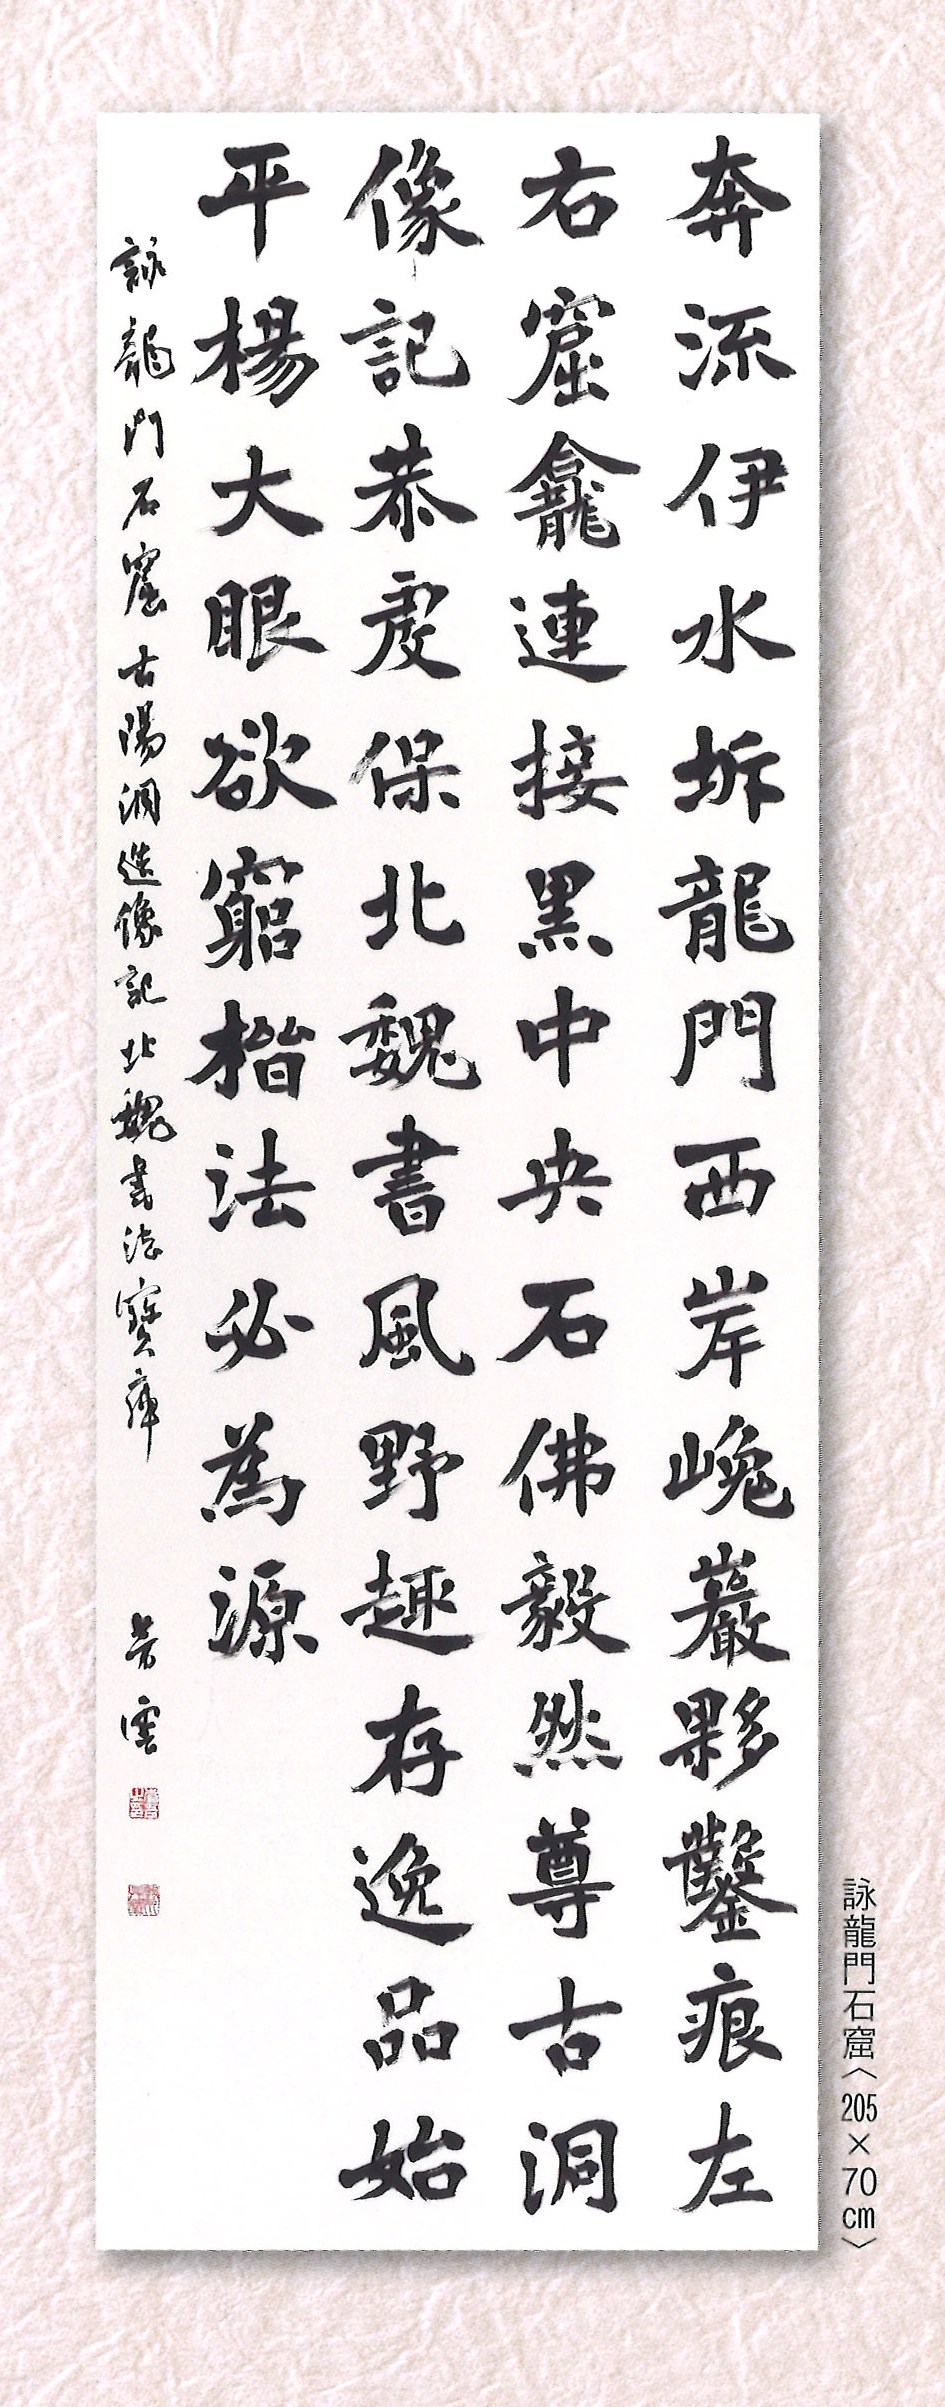 奔流伊水坼龍門西岸巉巖夥鑿痕左
右窟龕連接黑中央石佛毅然尊古洞
像記恭虔保北魏書風野趣存逸品始
平楊大眼欲窮楷法必為源
詠龍門石窟古陽洞造像記北魏書法寶庫 芳雲
詠龍門石窟〈205×70cm〉